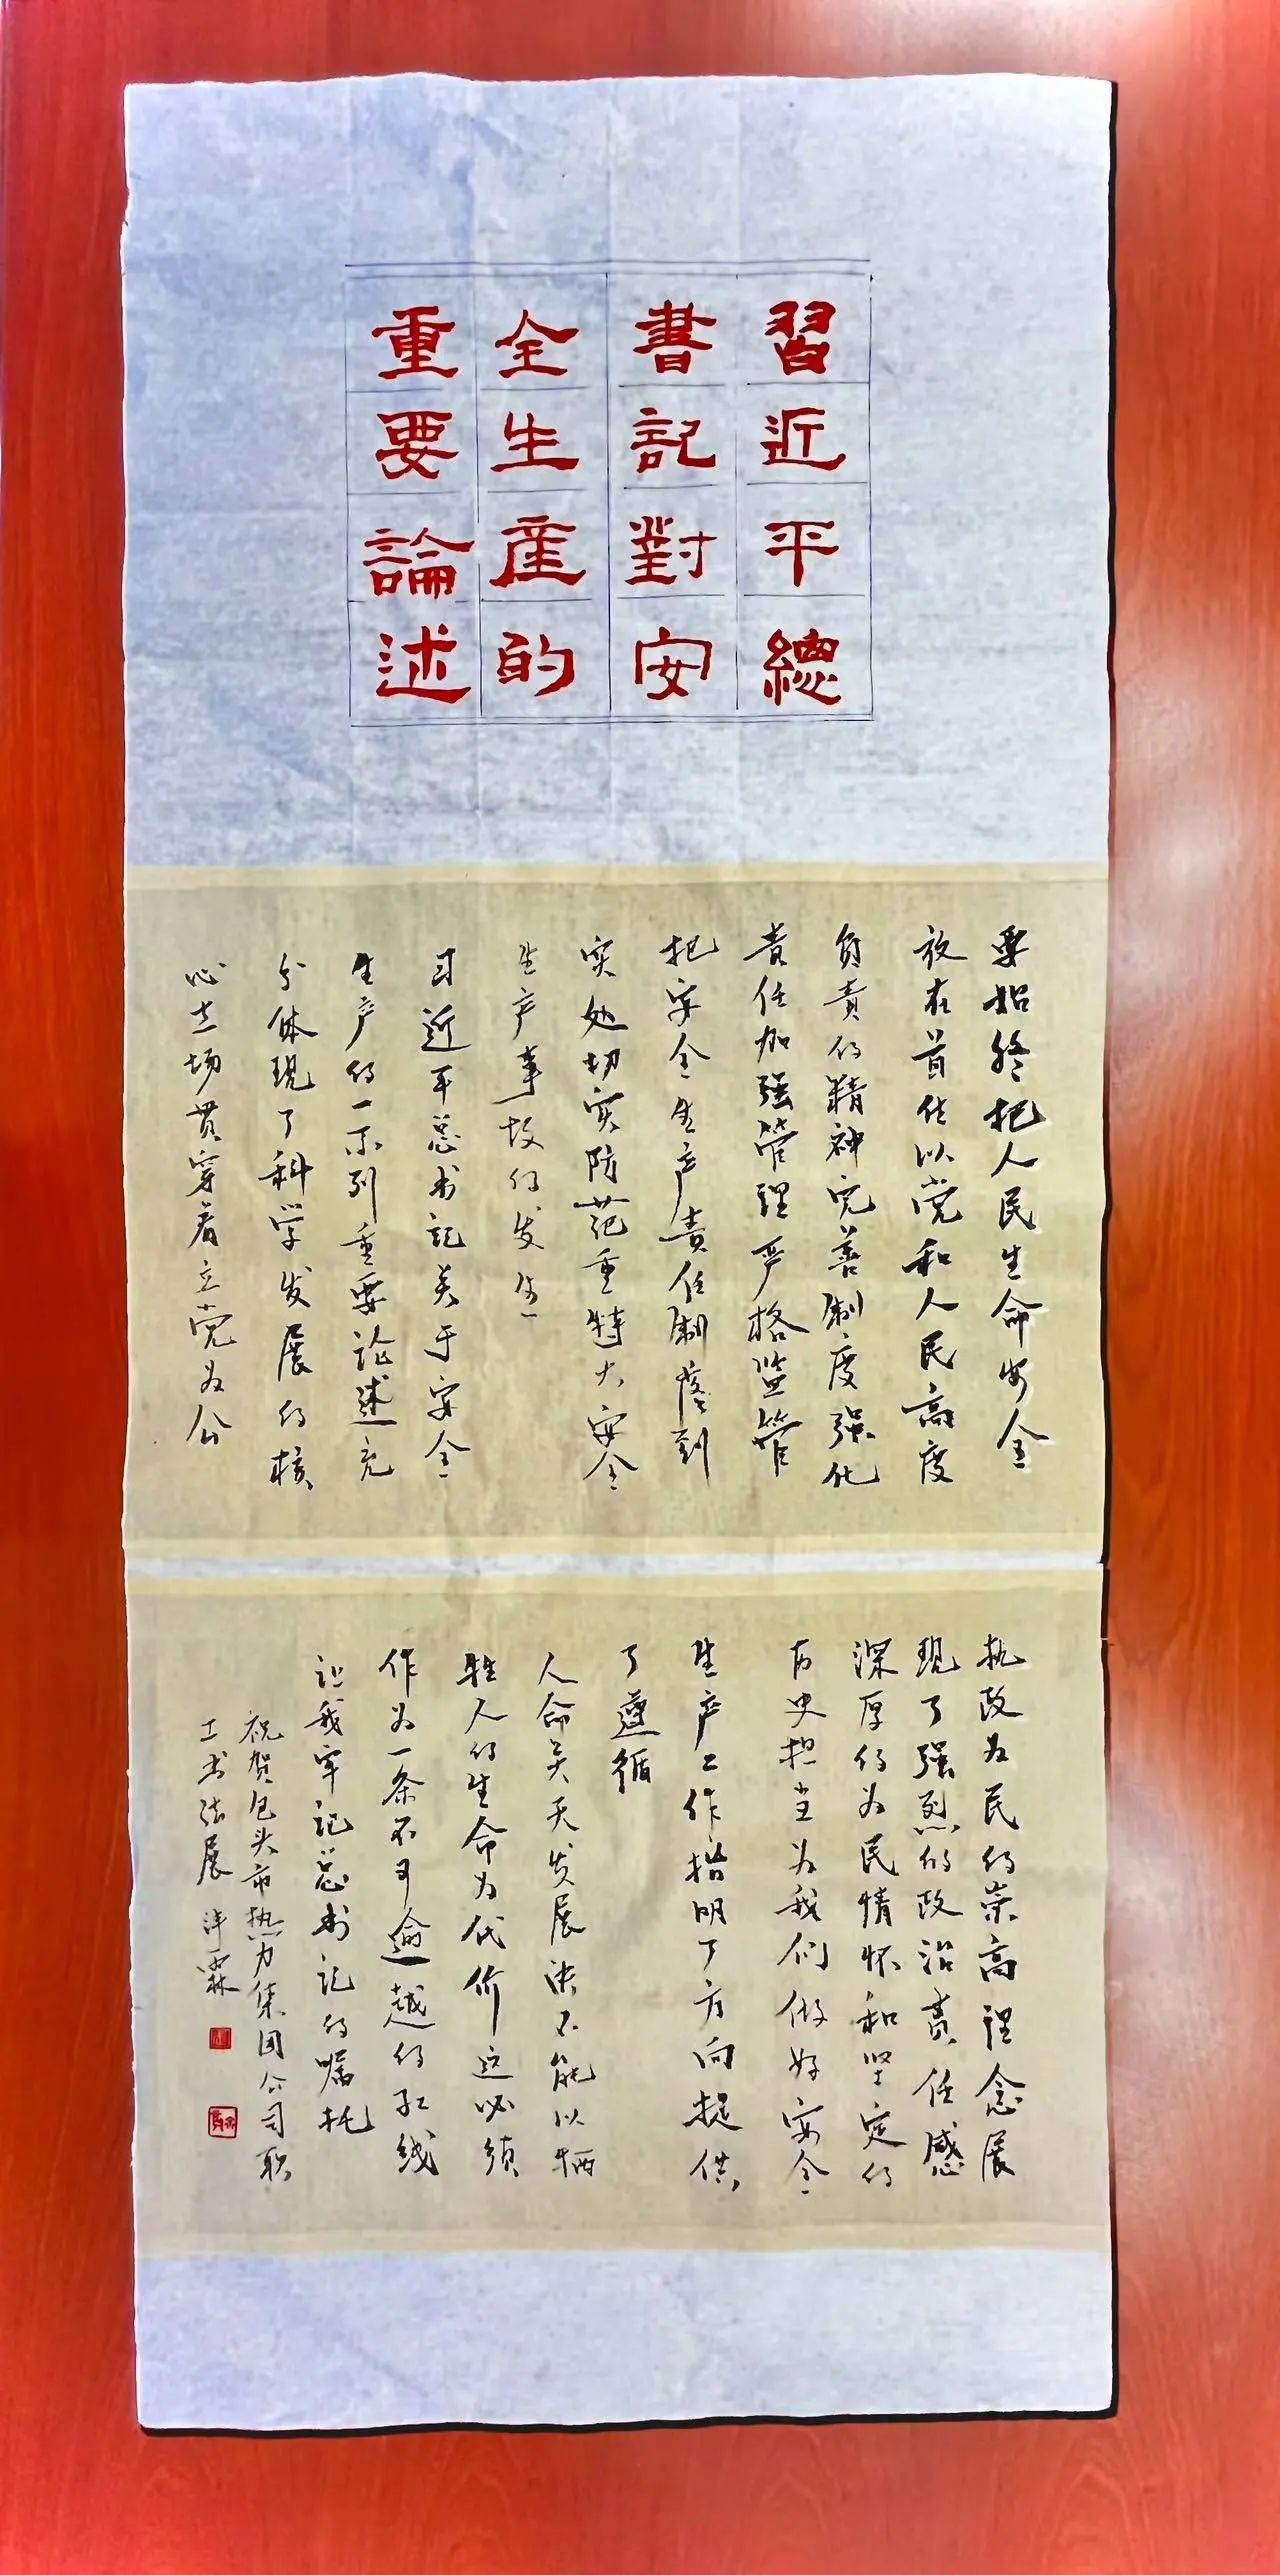 習近平總
書記對安
全生產的
重要論述
要始终把人民生命安全
放在首位以党和人民高度
负责的精神完善制度强化
责任加强管理严格监管
把安全生产责任制落到
实处切实防范重特大安全
生产事故的发生
习近平总书记关于安全
生产的一系列重要论述充
分体现了科学发展的核
心立场贯穿着立党为公
执政为民的崇高理念展
现了强烈的政治责任感
深厚的为民情怀和坚定的
历史担当为我们做好安全
生产工作指明了方向提供
了遵循
人命关天发展决不能以牺
牲人的生命为代价这必须
作为一条不可逾越的红线
让我牢记总书记的嘱托
祝贺包头市热力集团公司职
工书法展